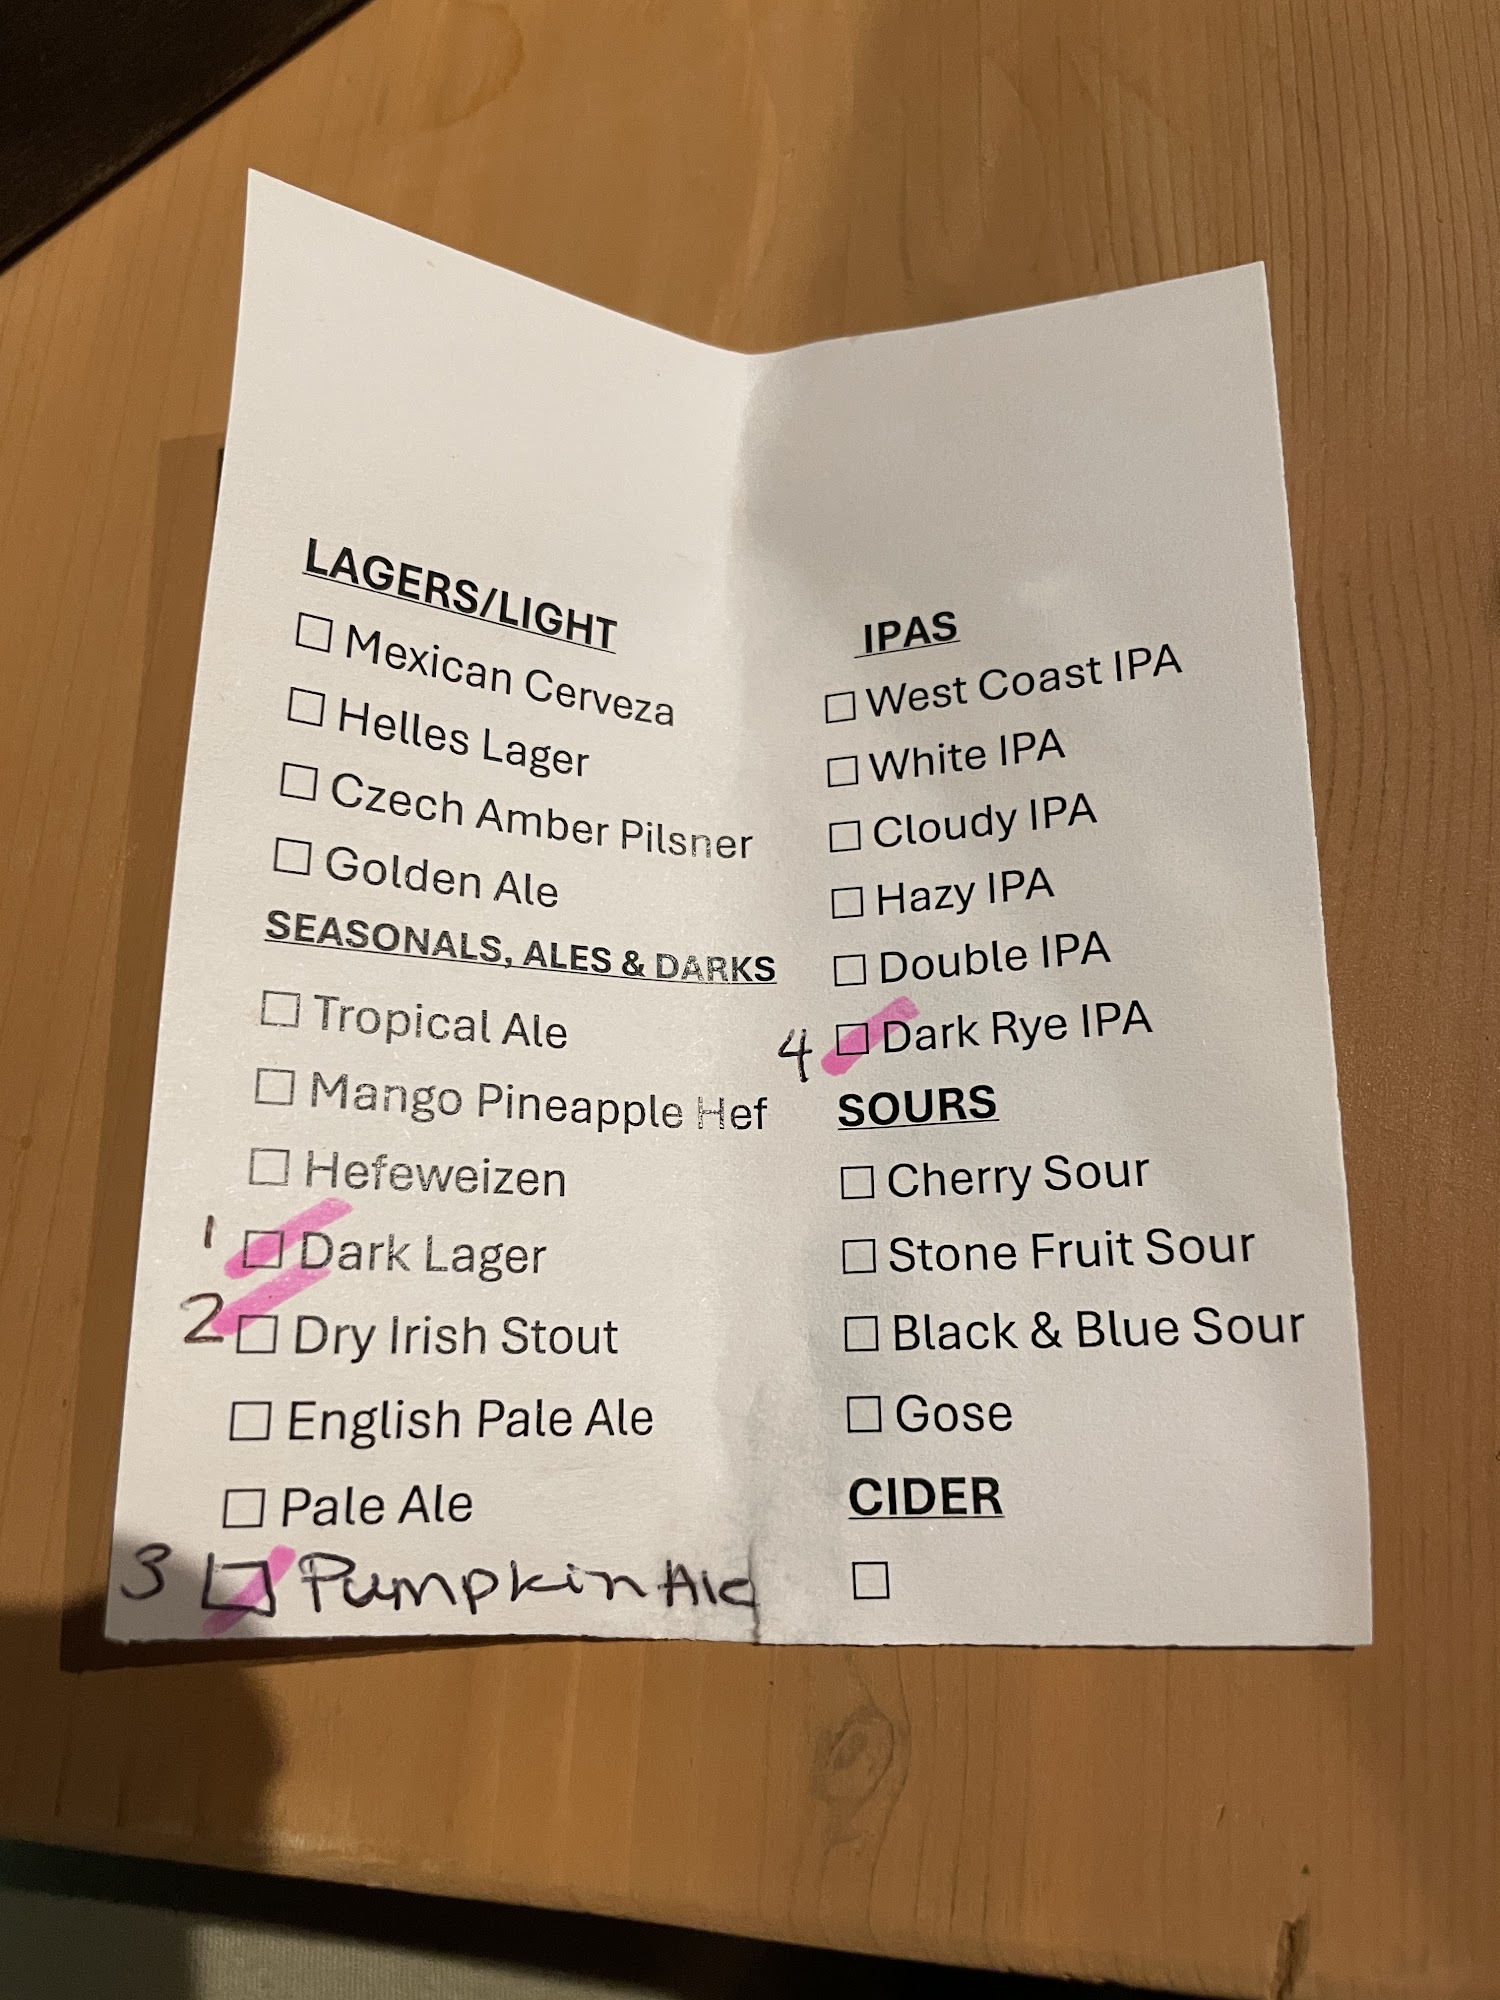 LAGERS/LIGHT
☐ Mexican Cerveza
☐ Helles Lager
☐ Czech Amber Pilsner
☐ Golden Ale
SEASONALS, ALES & DARKS
☐ Tropical Ale
☐ Mango Pineapple Hef
☐ Hefeweizen
1 ☐ Dark Lager
2 ☐ Dry Irish Stout
☐ English Pale Ale
☐ Pale Ale
3 ☐ Pumpkin Ale
IPAS
☐ West Coast IPA
☐ White IPA
☐ Cloudy IPA
☐ Hazy IPA
☐ Double IPA
4 ☐ Dark Rye IPA
SOURS
☐ Cherry Sour
☐ Stone Fruit Sour
☐ Black & Blue Sour
☐ Gose
CIDER
☐